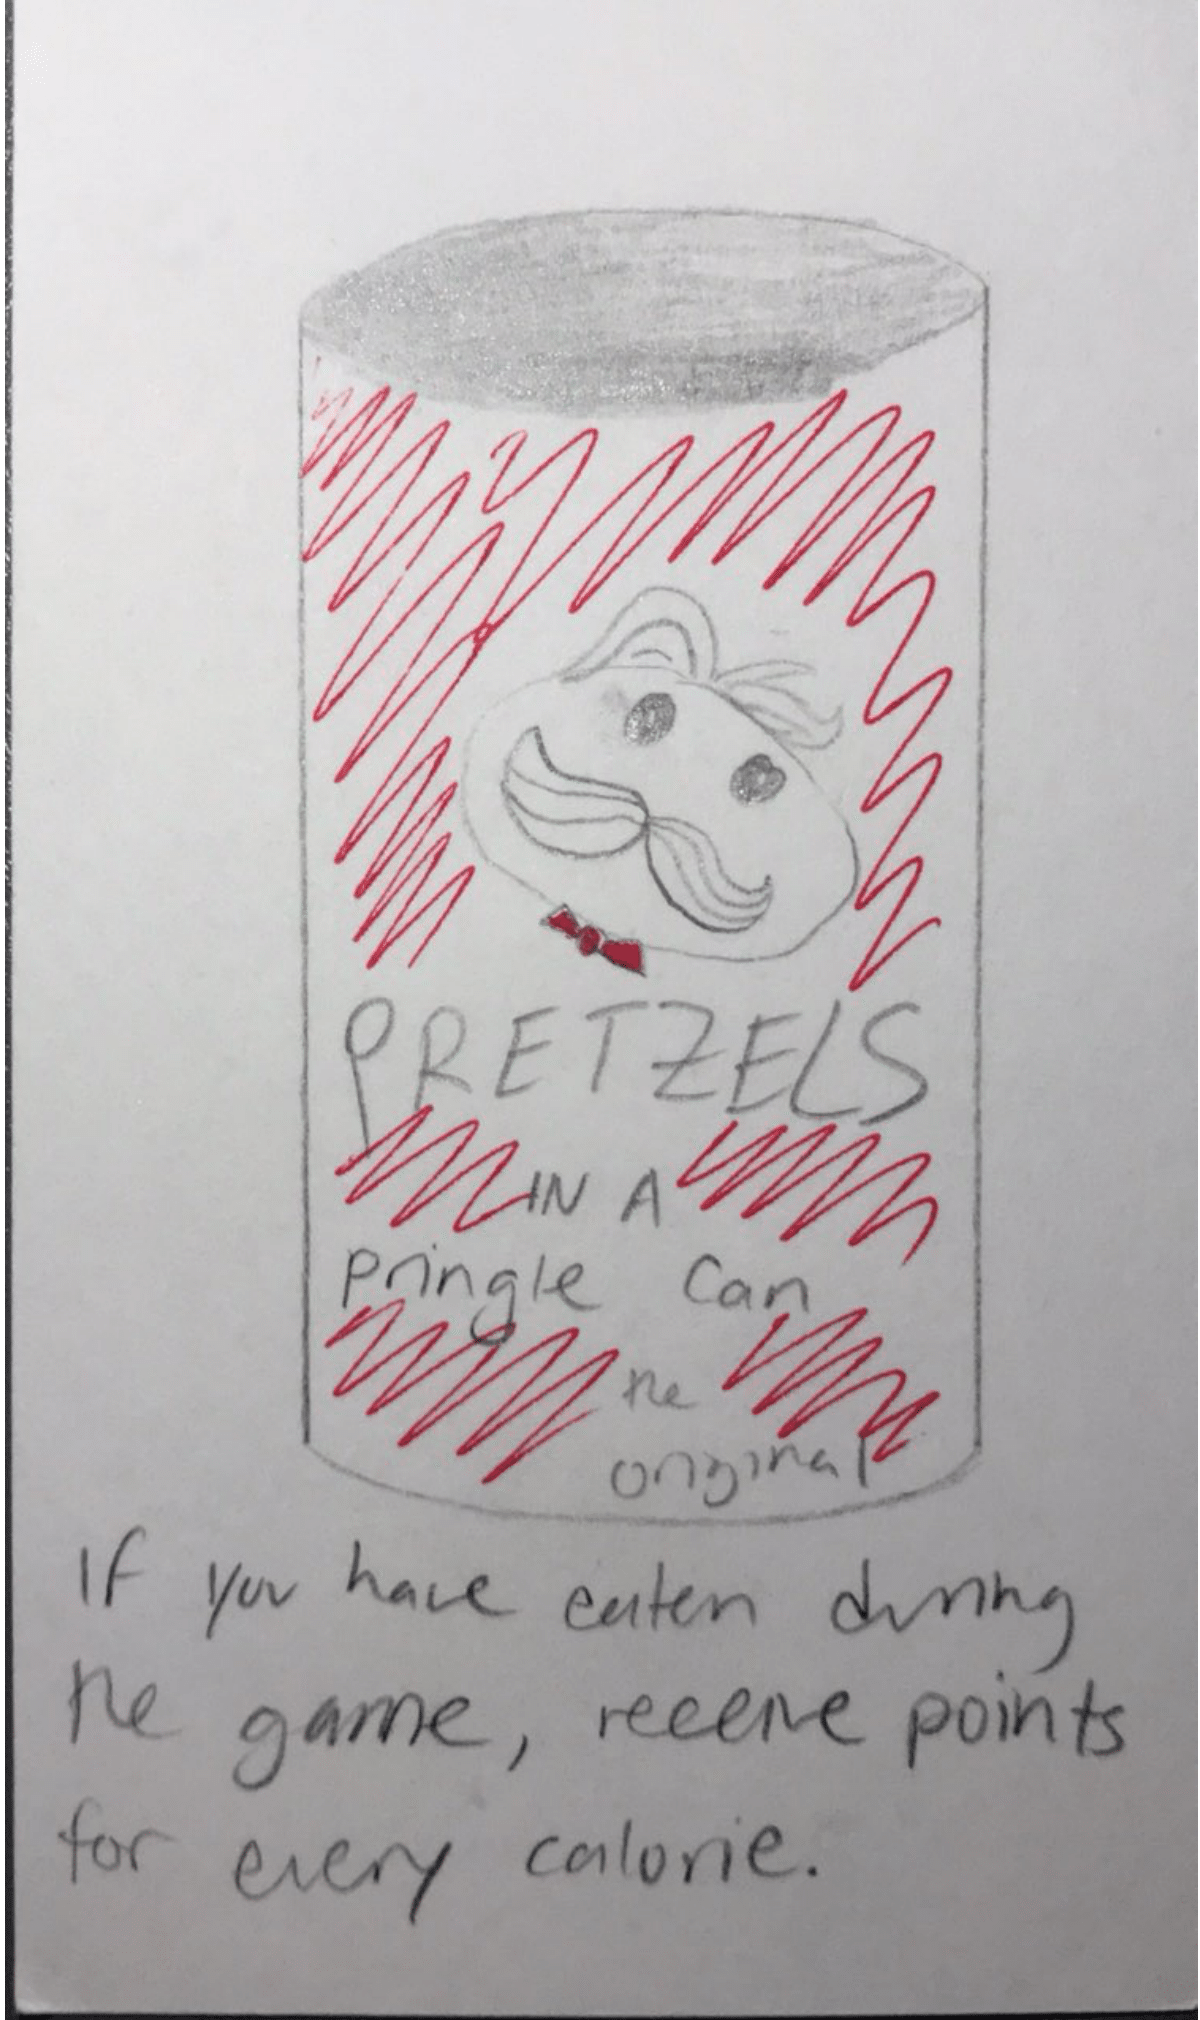 PRETZELS
IN A
pringle can
the
original
If you have eaten during
the game, receive points
for every calorie.